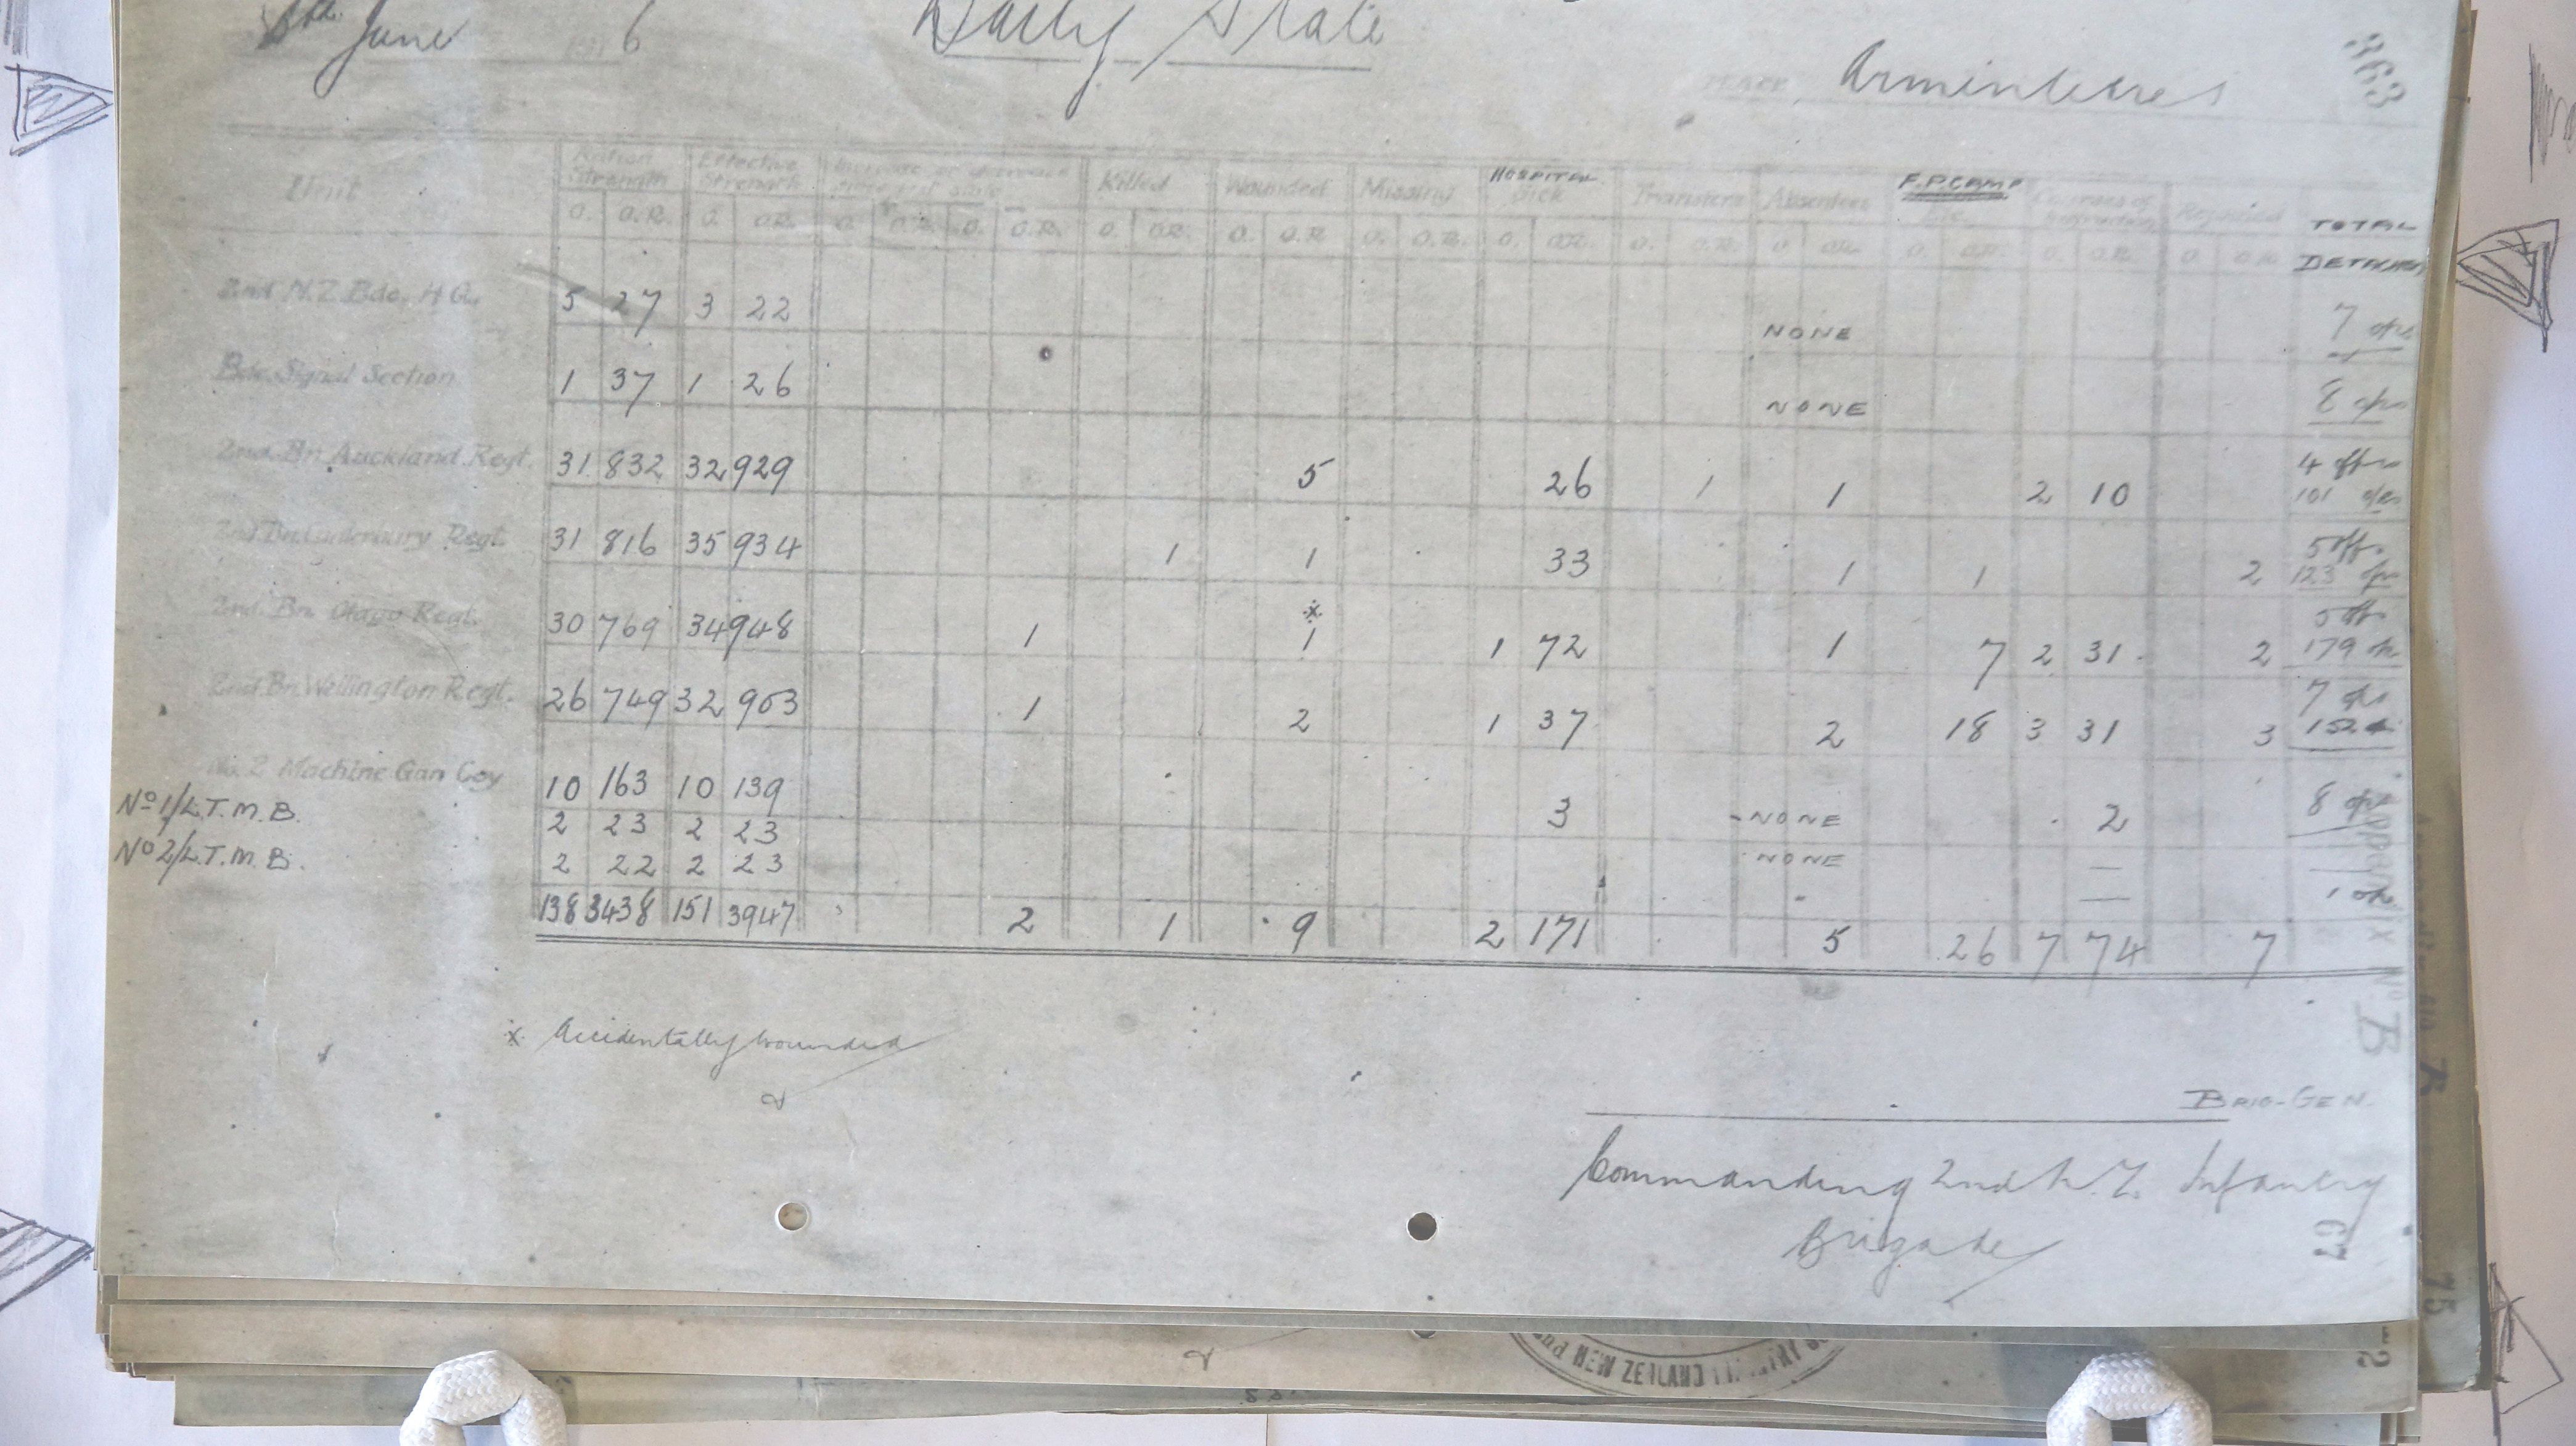 6th June 1916
Daily State
PLACE Armintieres
363
Unit Ration Strength Effective Strength Increase or decrease since last state Killed Wounded Missing HOSPITAL Sick Transfers Absentees F.P. CAMP Courses of Instruction Rejoined TOTAL DETACHED
O. O.R. O. O.R. O. O.R. O. O.R. O. O.R. O. O.R. O. O.R. O. O.R. O. O.R. O. O.R. O. O.R. O. O.R. O. O.R.
2nd N.Z. Bde. H.Q. 5 27 3 22 NONE 7 ors
Bde. Signal Section 1 37 1 26 NONE 8 ors
2nd. Bn. Auckland Regt. 31 832 32 929 5 26 1 1 2 10 4 offrs 101 ors
2nd. Bn. Canterbury Regt. 31 816 35 934 1 1 33 1 1 2 5 off. 123 ors
2nd. Bn. Otago Regt. 30 769 34 948 1 x 1 1 72 1 7 2 31 2 5 off 179 or
2nd Bn. Wellington Regt. 26 749 32 903 1 2 1 37 2 18 3 31 3 7 152
No. 2 Machine Gun Coy 10 163 10 139 3 - NONE 2 8 ors
No 1/L.T.M.B. 2 23 2 23 NONE —
No 2/L.T.M.B. 2 22 2 23 - — 1 or
138 3438 151 3947 2 1 9 2 171 5 26 7 74 7
x Accidentally wounded
Appendix No B
BRIG-GEN.
Commanding 2nd N.Z. Infantry
Brigade
67
75
2ND NEW ZEALAND